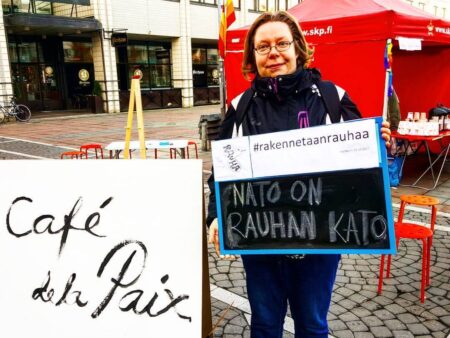 www.skp.fi
Café
de la
Paix
RAUHA
#rakennetaanrauhaa
NATO ON
RAUHAN KATO